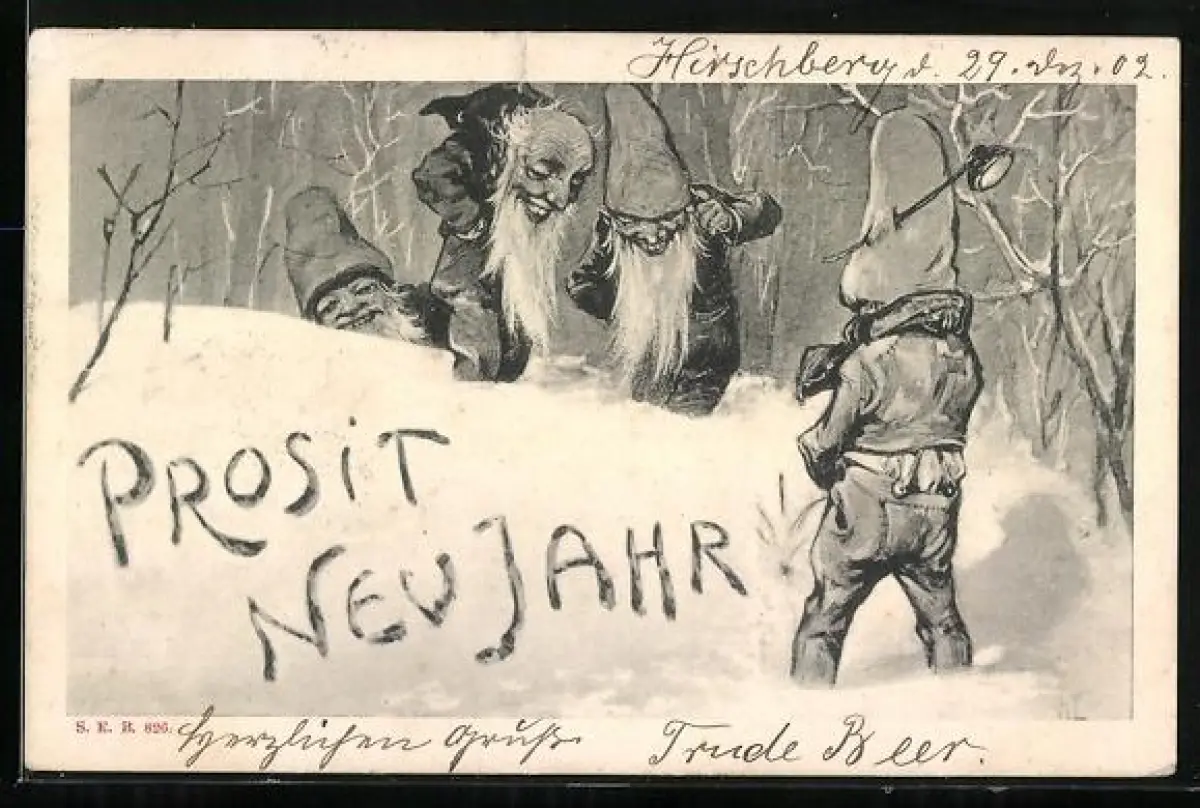 Hirschberg d. 29. Dez. 02.
PROSiT
NEUJAHR
S. E. B. 826.
Herzlichen Gruß Trude Beer.